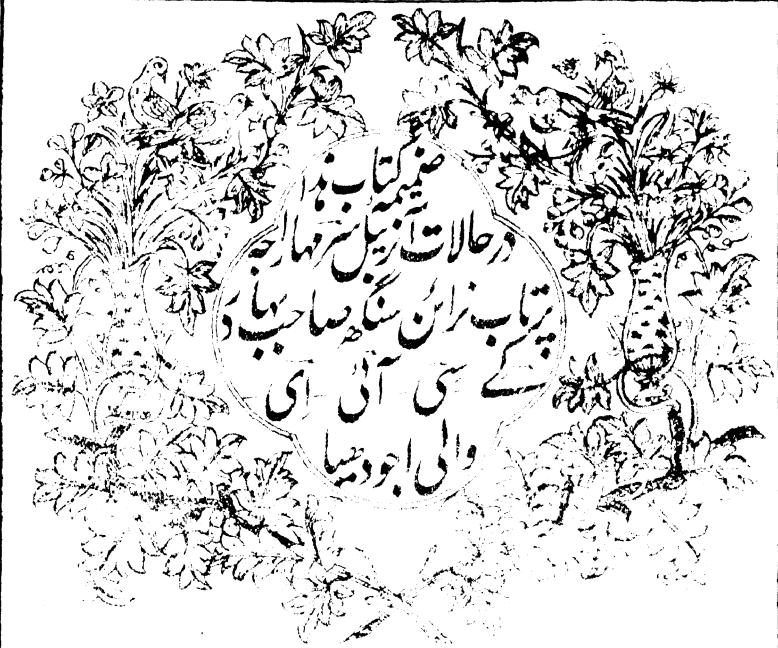 ضمیمہ کتاب ہذا
در حالات آنربیل سر مہاراجہ
پرتاب نرائن سنگھ صاحب بہادر
کے سی آئی ای
والی اجودھیا